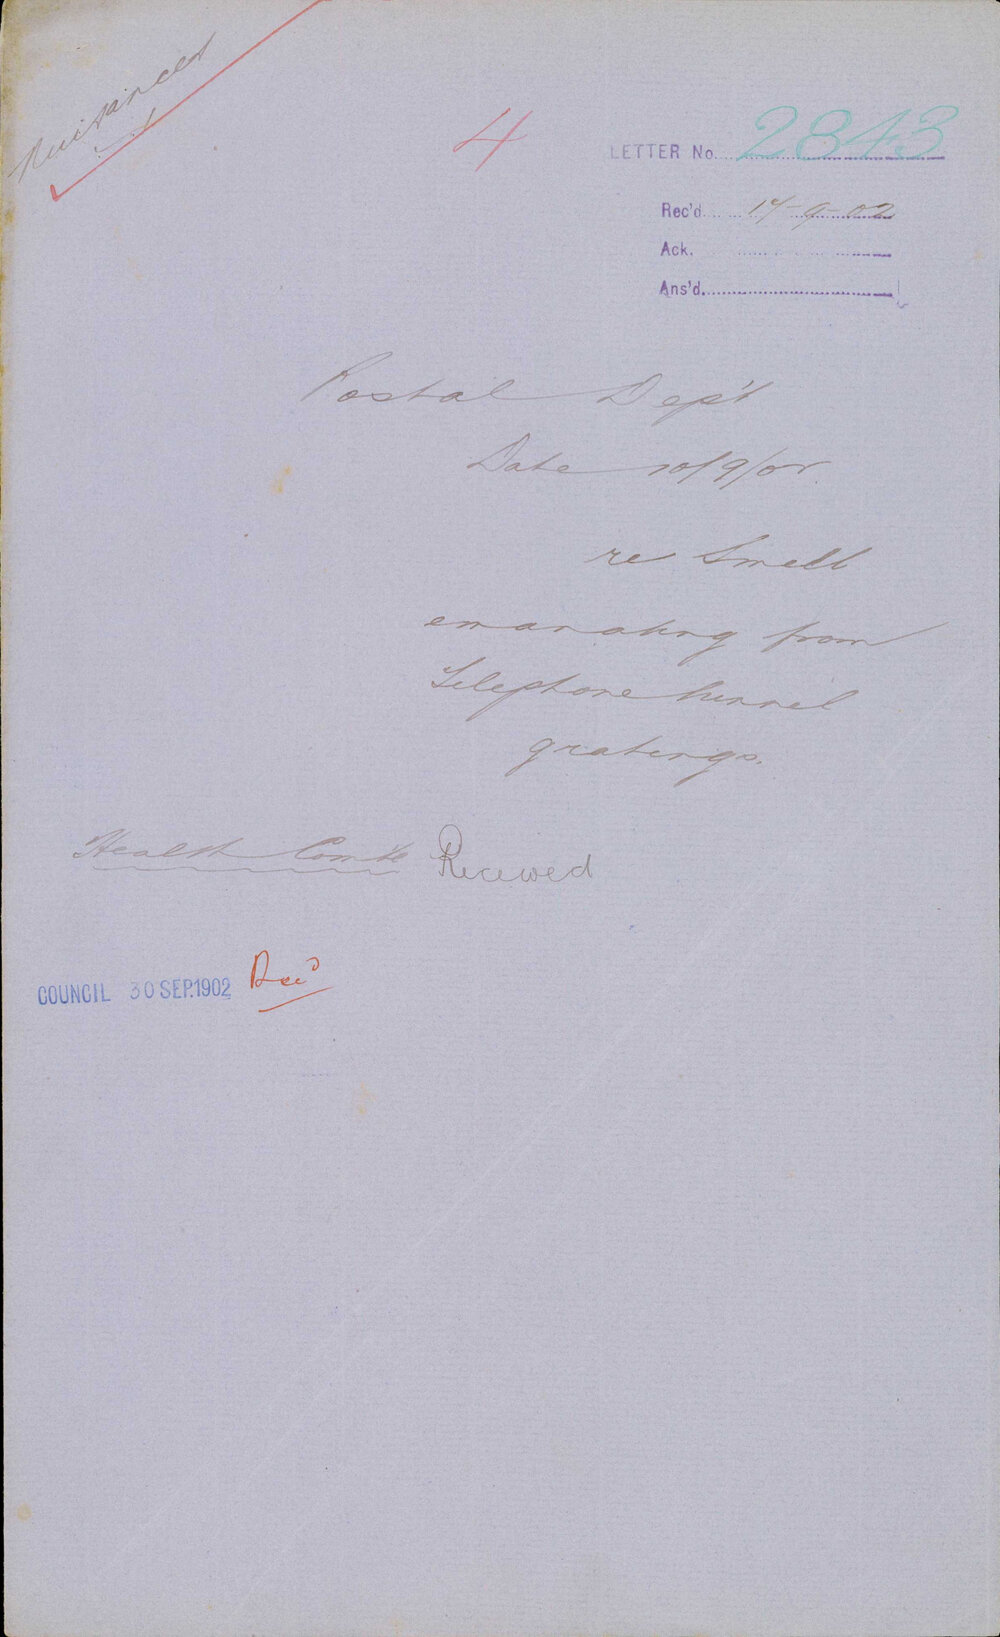 Nuisances
4
LETTER No. 2843
Rec'd. 17-9-02
Ack.
Ans'd.
Postal Dep't
Date 10/9/02.
re Smell
emanating from
Telephone tunnel
gratings.
Health Comte Received
COUNCIL 30 SEP.1902 Recd